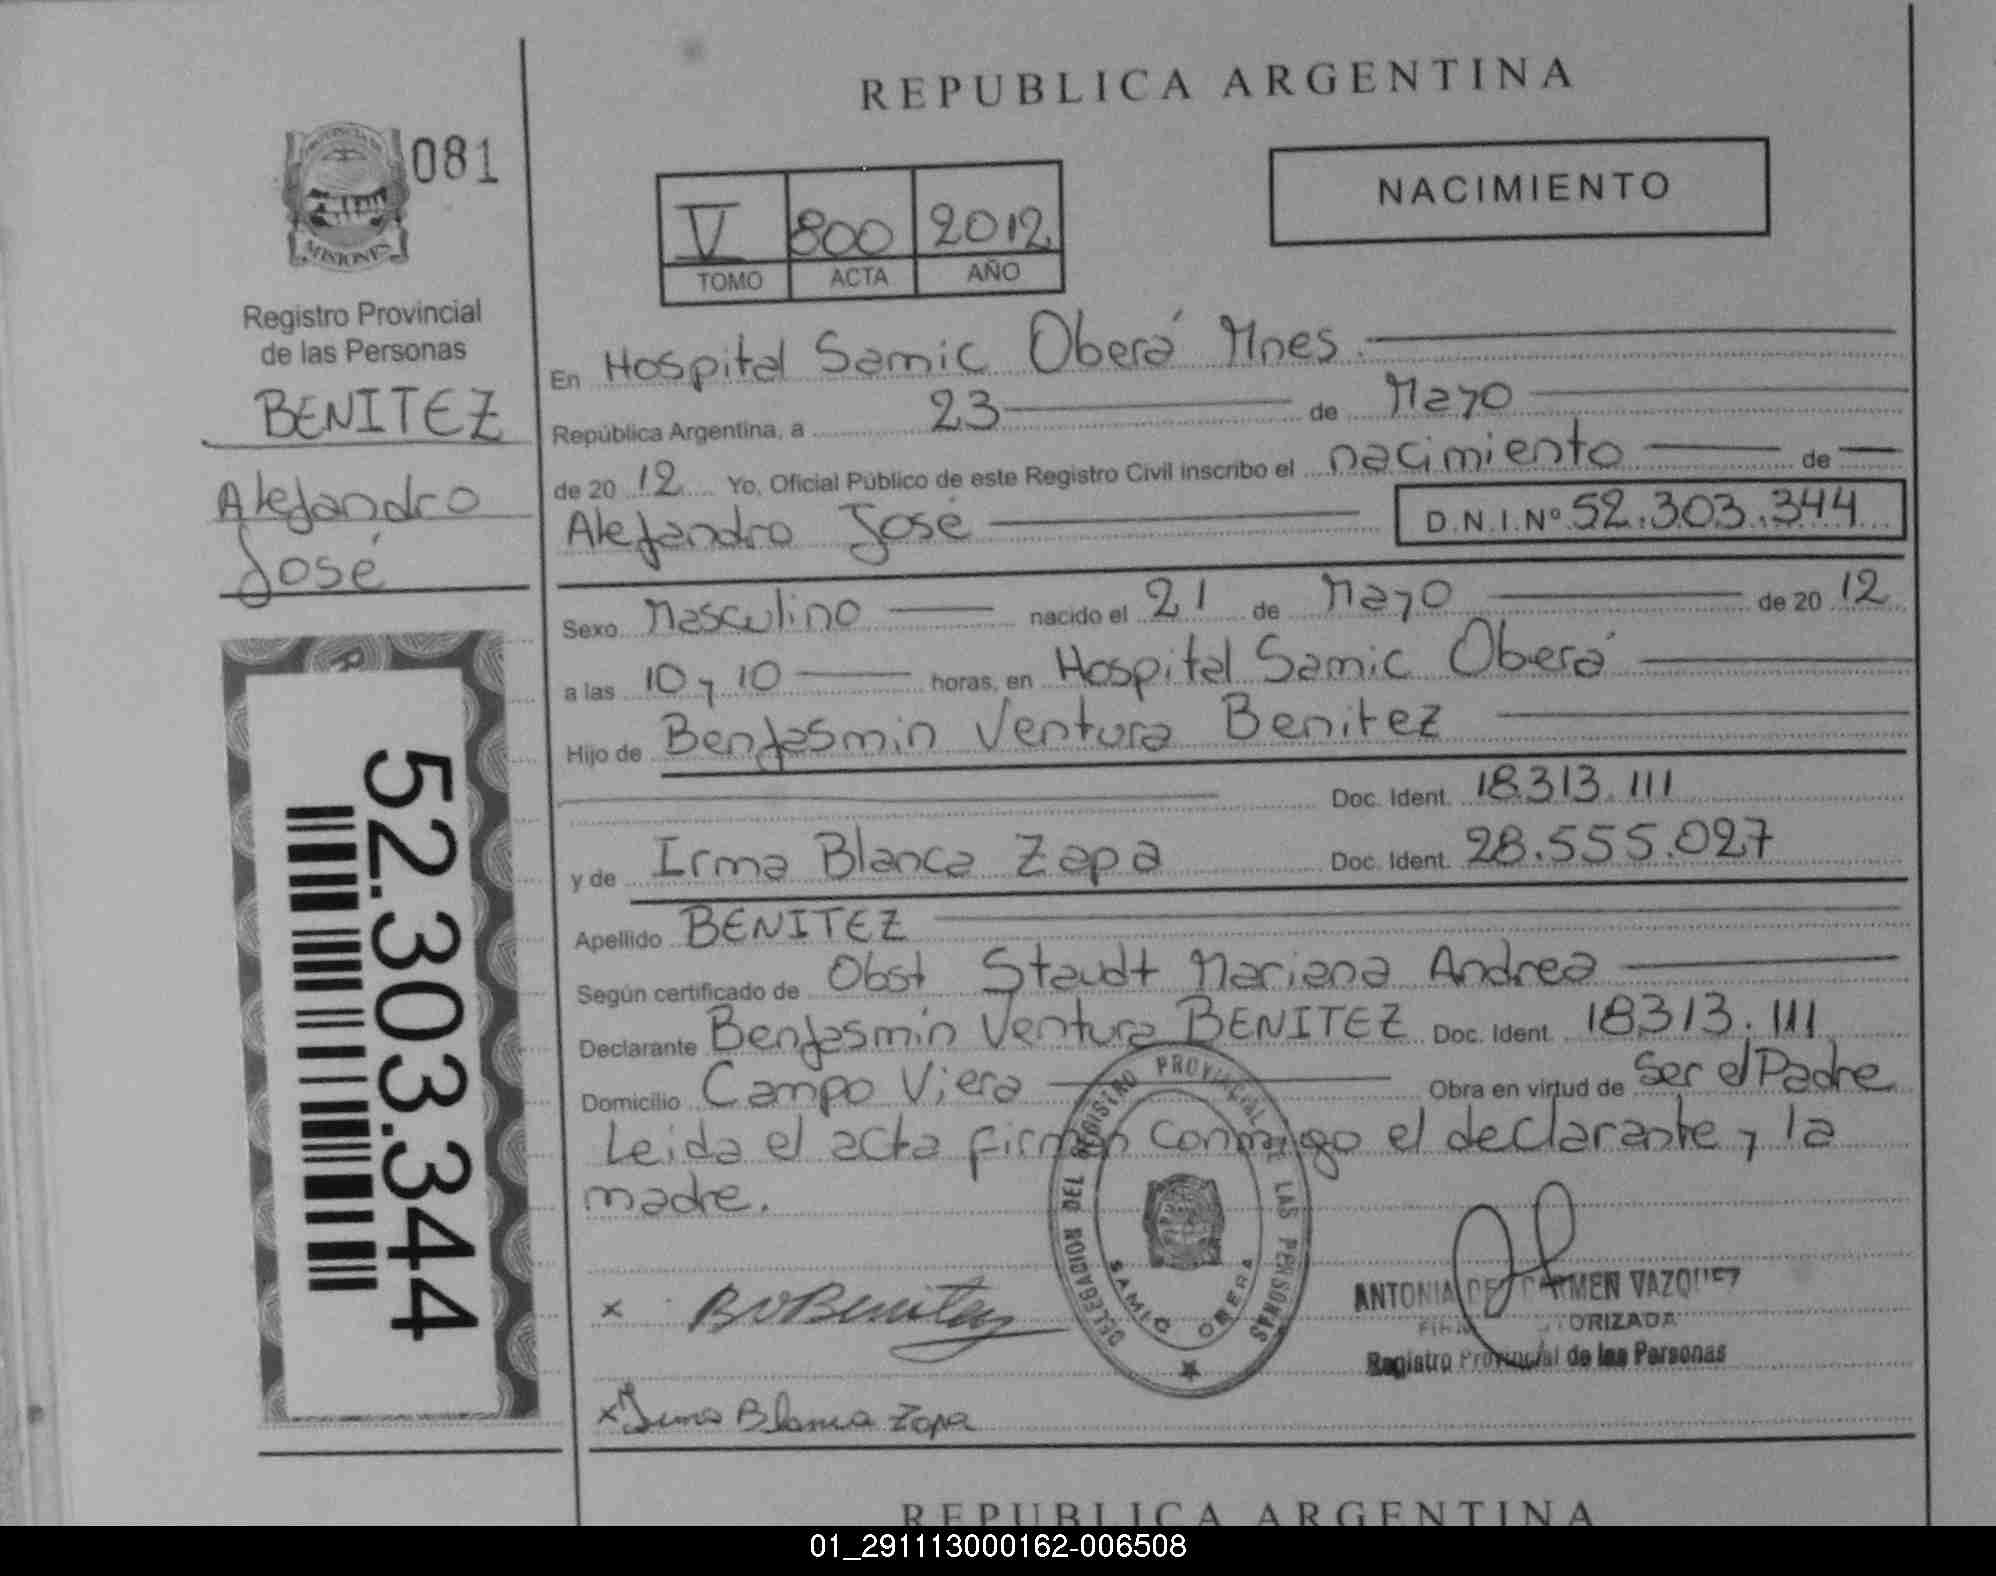 REPUBLICA ARGENTINA
081
MISIONES
Registro Provincial
de las Personas
BENITEZ
Alejandro
José
52.303.344
NACIMIENTO
V 800 2012
TOMO ACTA AÑO
En Hospital Samic Oberá Mnes.
República Argentina, a 23 de Mayo
de 20 12 Yo, Oficial Público de este Registro Civil inscribo el nacimiento de
Alejandro José D.N.I.Nº 52.303.344
Sexo Masculino nacido el 21 de Mayo de 20 12
a las 10 y 10 horas, en Hospital Samic Oberá
Hijo de Benjasmin Ventura Benitez
Doc. Ident. 18313.111
y de Irma Blanca Zapa Doc. Ident. 28.555.027
Apellido BENITEZ
Según certificado de Obst Staudt Mariana Andrea
Declarante Benjasmin Ventura BENITEZ Doc. Ident. 18313.111
Domicilio Campo Viera Obra en virtud de Ser el Padre
Leida el acta firman conmigo el declarante y la
madre.
DELEGACION DEL REGISTRO PROVINCIAL DE LAS PERSONAS
SAMIC OBERA
x BVBenitez
ANTONIA DEL CARMEN VAZQUEZ
FIRMA AUTORIZADA
Registro Provincial de las Personas
x Irma Blanca Zapa
REPUBLICA ARGENTINA
01_291113000162-006508